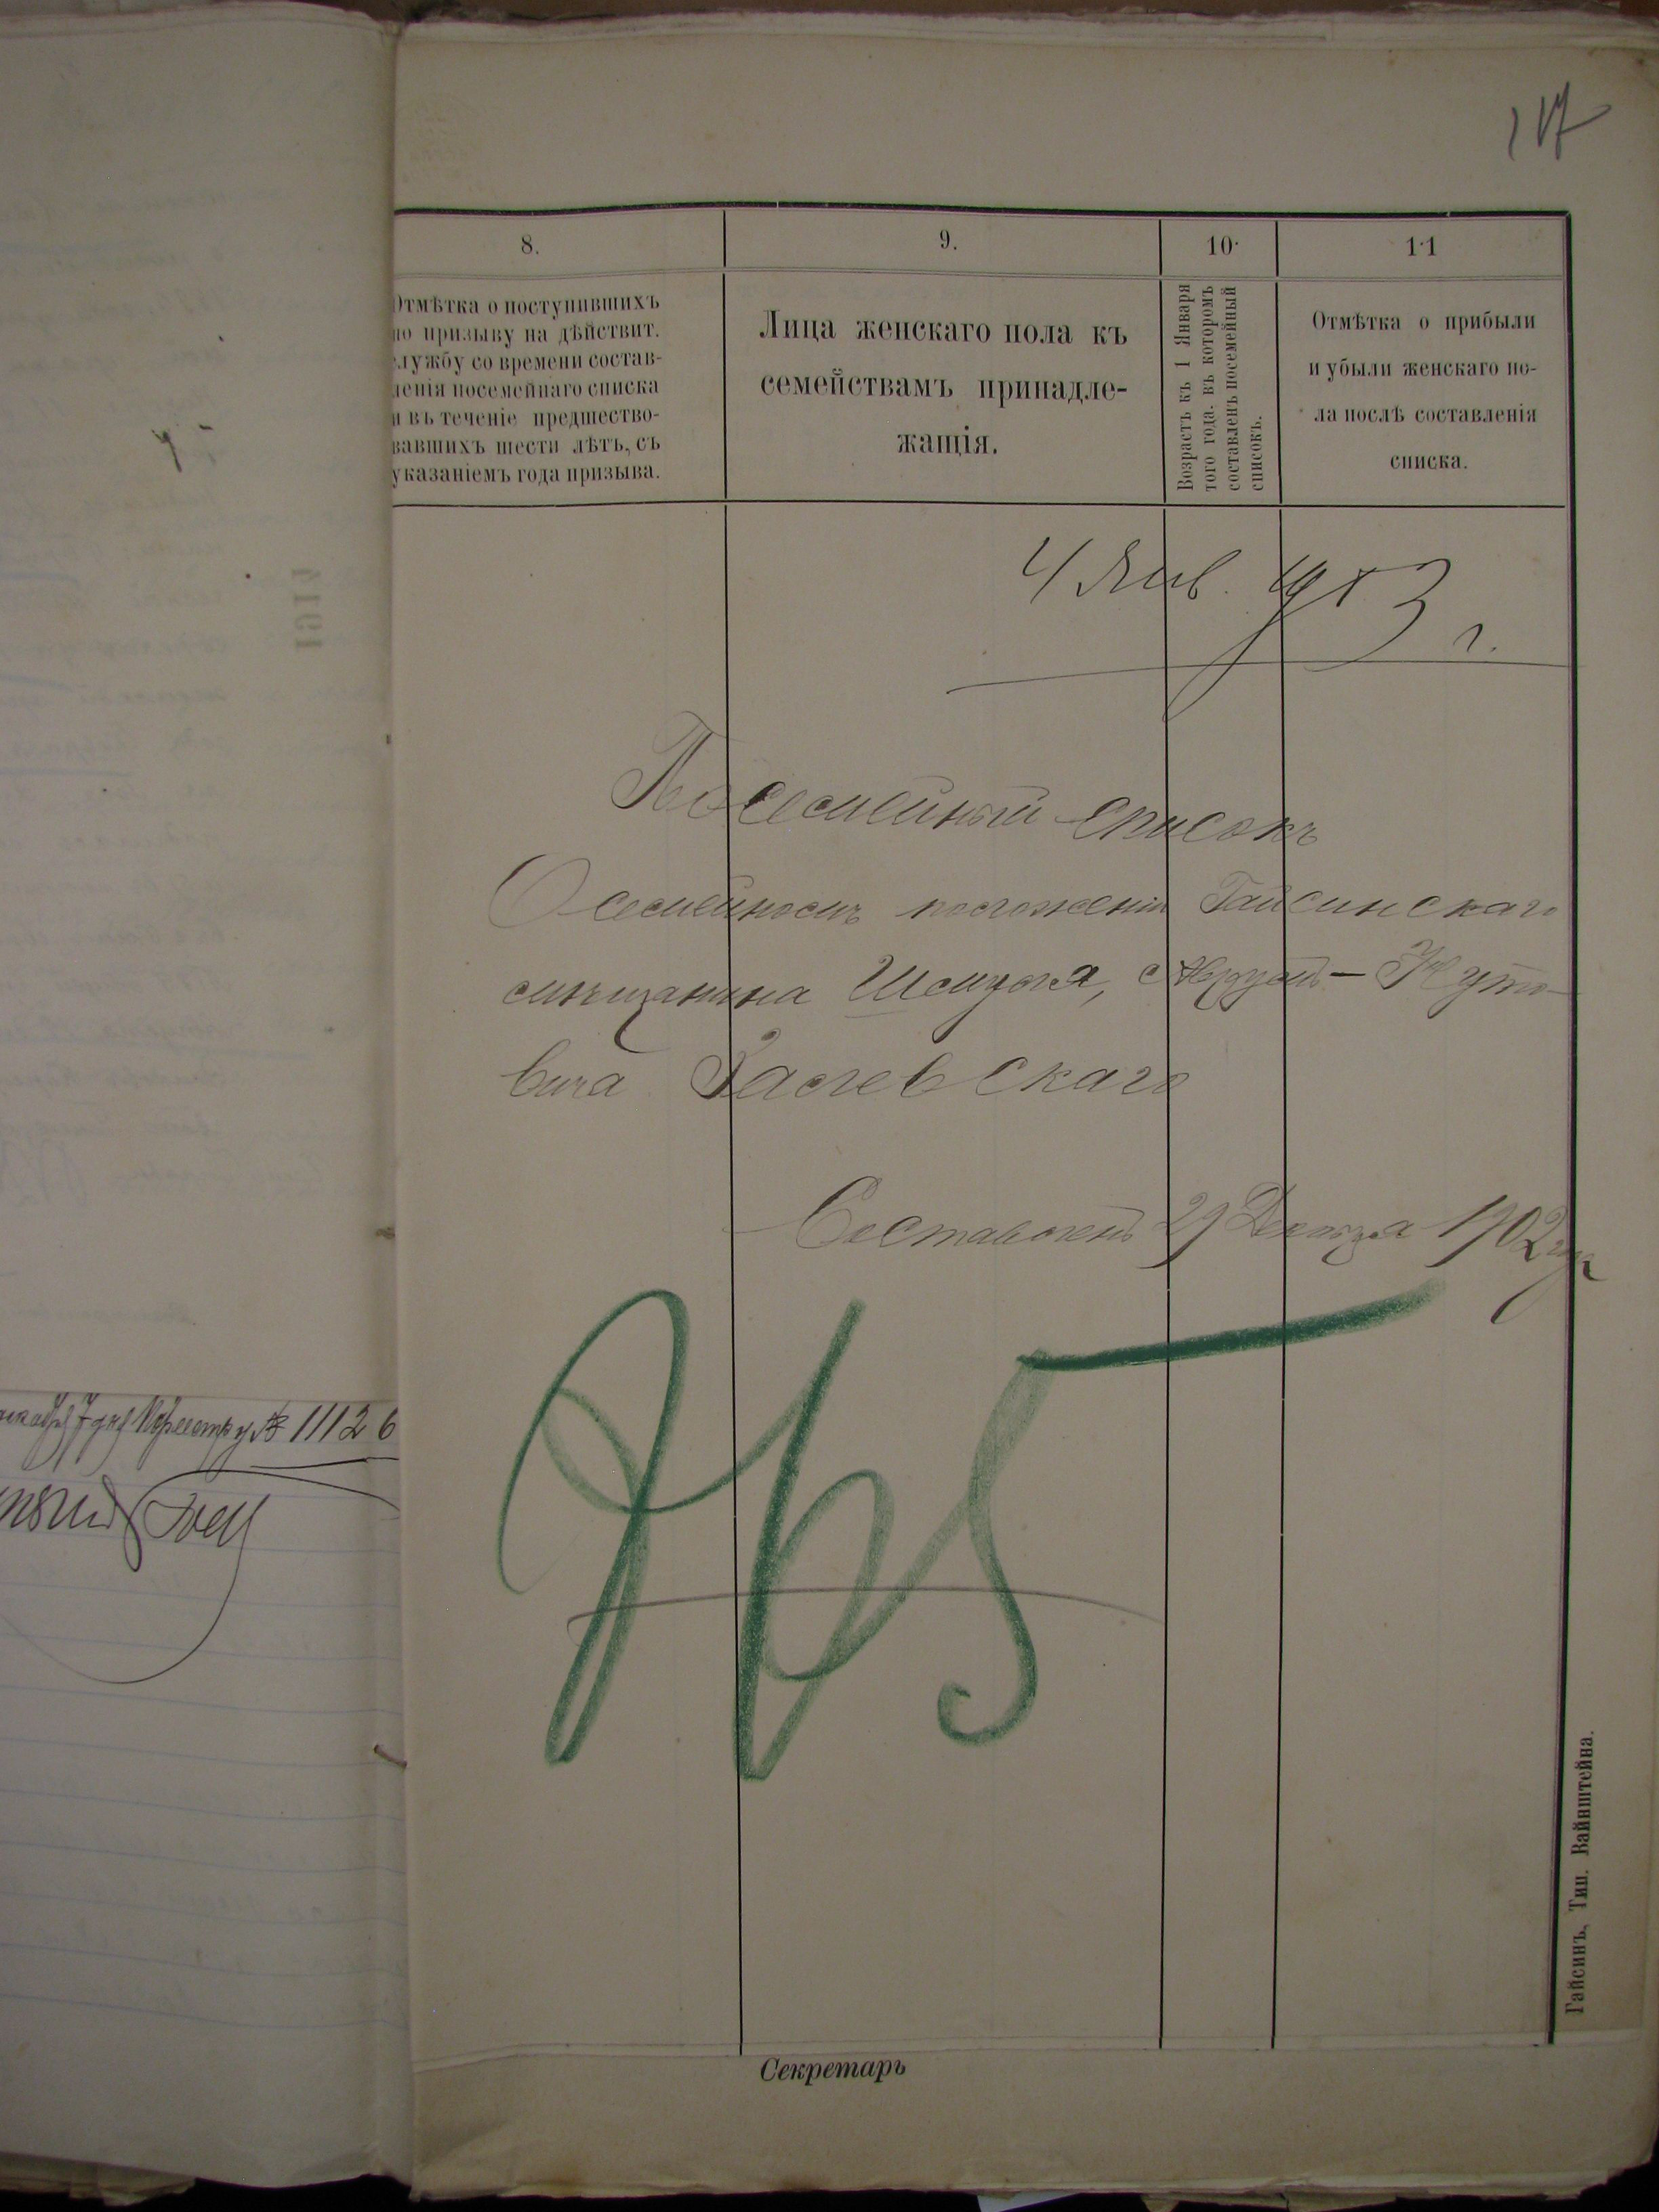 117
8.
9.
10.
11
Отмѣтка о поступившихъ
по призыву на дѣйствит.
службу со времени состав-
ленія посемейнаго списка
и въ теченіе предшество-
вавшихъ шести лѣтъ, съ
указаніемъ года призыва.
Лица женскаго пола къ
семействамъ принадле-
жащія.
Возрастъ къ 1 Января
того года. въ которомъ
составленъ посемейный
списокъ.
Отмѣтка о прибыли
и убыли женскаго по-
ла послѣ составленія
списка.
4 Янв. 1903 г.
Посемейный списокъ
О семейномъ положеніи Гайсинскаго
мѣщанина Шмуля,
вича Залевскаго
Составленъ 29 Декабря 1902 года
Реестру № 11126
Секретарь
Гайсинъ, Тип. Вайнштейна.